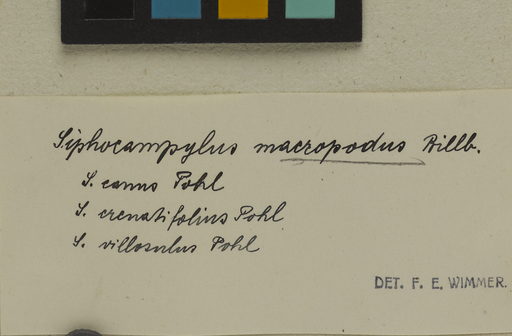 Siphocampylus macropodus Billb.
S. canus Pohl
S. crenatifolius Pohl
S. villosulus Pohl
DET. F. E. WIMMER.